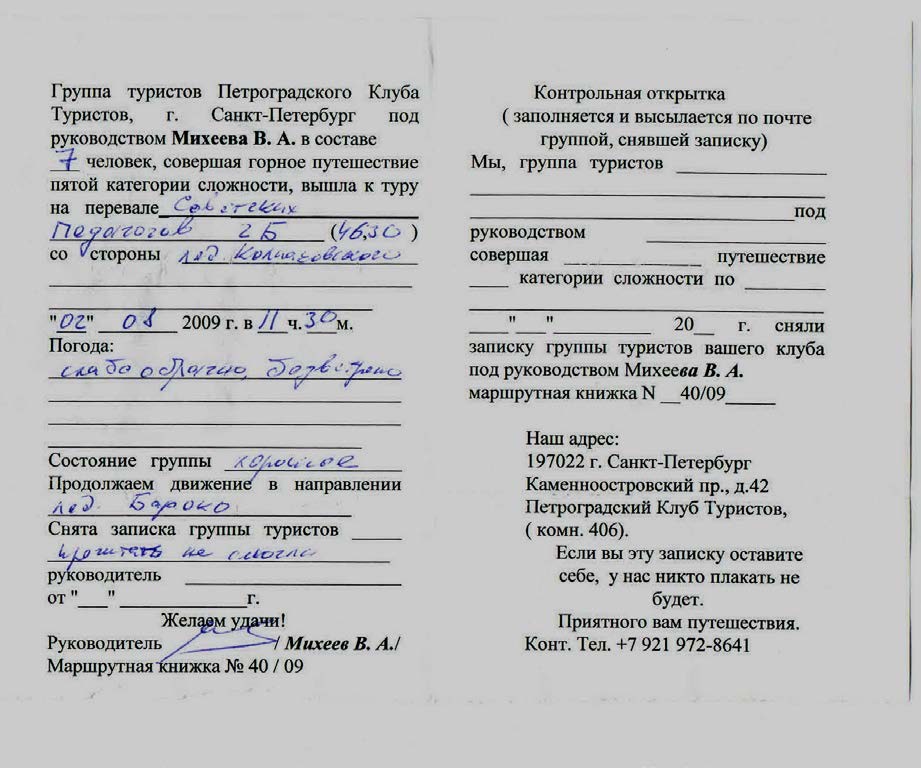 Группа туристов Петроградского Клуба
Туристов, г. Санкт-Петербург под
руководством Михеева В. А. в составе
7 человек, совершая горное путешествие
пятой категории сложности, вышла к туру
на перевале Советских
Педагогов 2Б (4630)
со стороны лед. Колпаковского
"02" 08 2009 г. в 11 ч. 30 м.
Погода:
слабо облачно, безветрено
Состояние группы хорошее
Продолжаем движение в направлении
лед. Бароко
Снята записка группы туристов
прочитать не смогли
руководитель
от "___" ____________г.
Желаем удачи!
Руководитель / Михеев В. А./
Маршрутная книжка № 40 / 09
Контрольная открытка
( заполняется и высылается по почте
группой, снявшей записку)
Мы, группа туристов
под
руководством
совершая ____________ путешествие
____ категории сложности по
____"___"__________ 20__ г. сняли
записку группы туристов вашего клуба
под руководством Михеева В. А.
маршрутная книжка N __40/09_____
Наш адрес:
197022 г. Санкт-Петербург
Каменноостровский пр., д.42
Петроградский Клуб Туристов,
( комн. 406).
Если вы эту записку оставите
себе, у нас никто плакать не
будет.
Приятного вам путешествия.
Конт. Тел. +7 921 972-8641